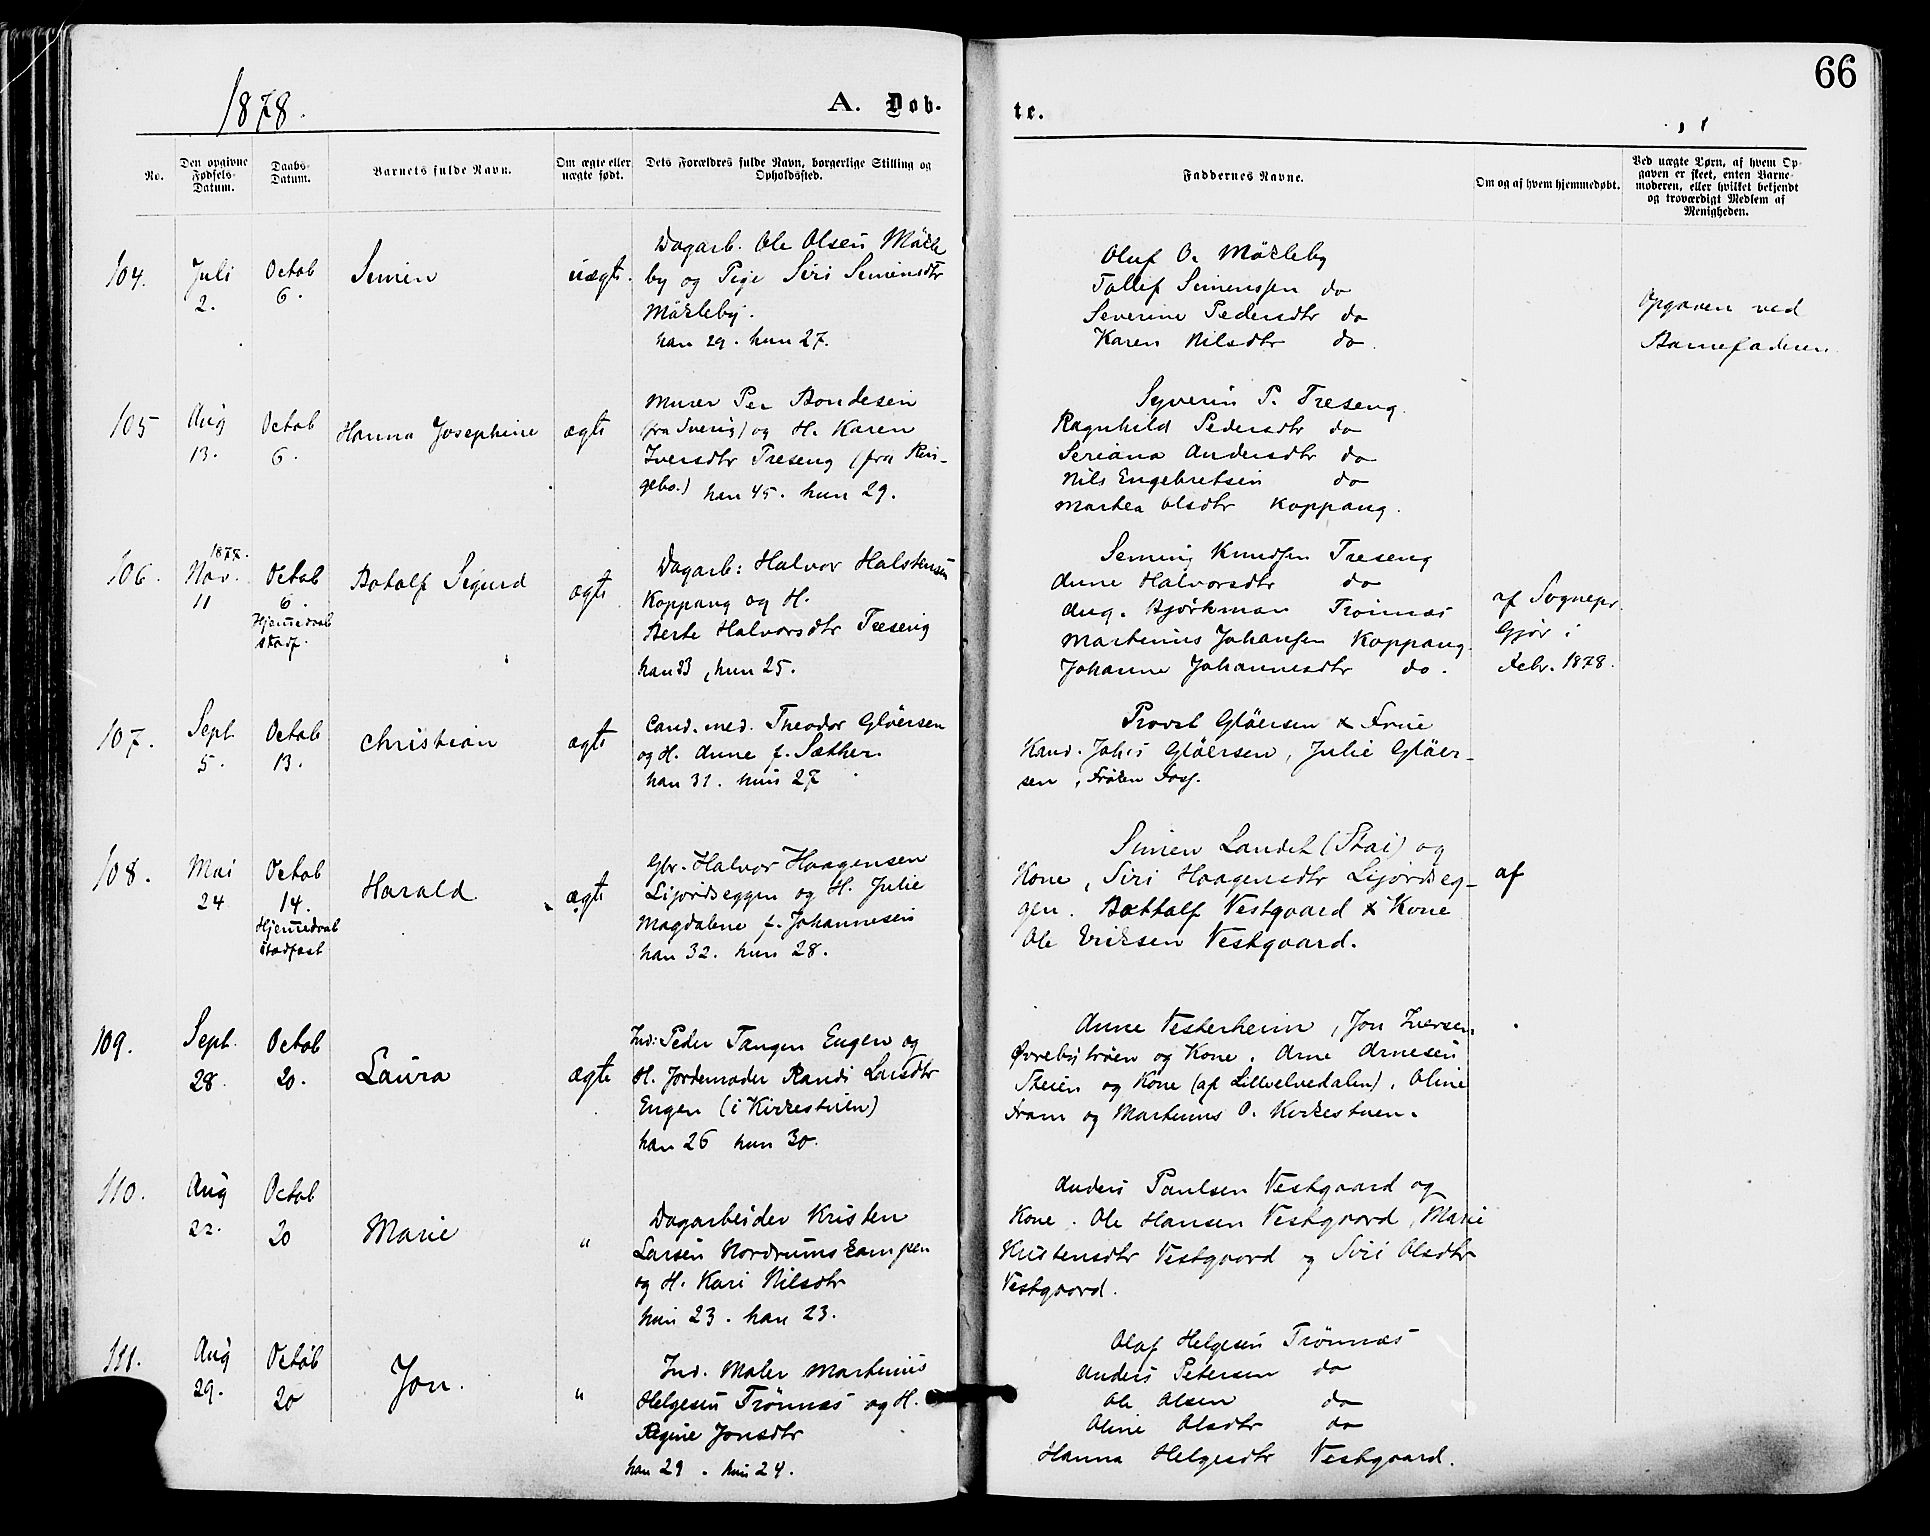 66
1878.
A. Døb-
te.
No.
Den opgivne Fødsels-Datum.
Daabs-Datum.
Barnets fulde Navn.
Om ægte eller uægte født.
Dets Forældres fulde Navn, borgerlige Stilling og Opholdssted.
Faddernes Navne.
Om og af hvem hjemmedøbt.
Ved uægte Børn, af hvem Opgaven er skeet, enten Barnemoderen, eller hvilket bekjendt og troværdigt Medlem af Menigheden.
104.
Juli
2.
Octob
6.
Simen
uægte.
Dagarb. Ole Olsen Mökle
by og Pige Siri Simensdtr
Mökleby.
han 29. hun 27.
Oluf O. Mökleby
Tollef Simenssen do
Severine Pedersdtr do
Karen Nilsdtr do.
Opgaven ved
Barnefaderen.
105
Aug
13.
Octob
6.
Hanna Josephine
ægte
Murer Per Bondesen
(fra Sverig) og H. Karen
Iversdtr Treseng (fra Rin-
gebo.) han 45. hun 29.
Syverin P. Treseng.
Ragnhild Pedersdtr do
Seriana Andersdtr do
Nils Engebretsen do
Marthea Olsdtr Koppang.
106.
1877.
Nov.
11
Octob
6.
Hjemmedaab
stadf.
Botolf Sigurd
ægte
Dagarb: Halvor Halstensen
Koppang og H.
Berte Halvorsdtr Treseng
han 23, hun 25.
Seming Knudsen Treseng
Anne Halvorsdtr do
Aug. Bjørkman Trönnæs
Martinius Johansen Koppang.
Johanne Johannesdtr do.
af Sognepr.
Gjør i
Febr. 1878.
107.
Sept.
5.
Octob
13.
Christian
ægte
Cand. med. Theodor Glöersen
og H. Anne f. Sæther.
han 31. hun 27
Provst Glöersen & Frue
Kand. Johs Glöersen, Julie Glöer-
sen, Fröken Foss.
108.
Mai
24
Octob
14.
Hjemmedaab
stadfæst
Harald
ægte
Gbr. Halvor Haagensen
Lijordseggen og H. Julie
Magdalene f. Johannesen
han 32. hun 28.
Simen Landet (Stai) og
Kone, Siri Haagensdtr Lijordseg-
gen. Bottolf Vestgaard & Kone
Ole Eriksen Vestgaard.
af
109.
Sept.
28.
Octob
20.
Laura
ægte
Ind: Peder Tangen Engen og
H. Jordemoder Randi Larsdtr
Engen (i Kirkestuen)
han 26 hun 30.
Anne Vesterheim, Jon Iversen
Øvrebytröen og Kone. Arne Arnesen
Steien og Kone (af Lilleelvedalen). Oline
Fram og Martinus O. Kirkestuen.
110.
Aug
22.
Octob
20
Marie
"
Dagarbeider Kristen
Larsen Nordrumskampen
og H. Kari Nilsdtr
hun 23. han 23.
Anders Paulsen Vestgaard og
Kone. Ole Hansen Vestgaard, Marie
Kristensdtr Vestgaard og Siri Olsdtr
Vestgaard.
111.
Aug
29.
Octob
20
Jon.
"
Ind. Maler Martinius
Helgesen Trönnæs og H.
Regine Jonsdtr
han 29. hun 24.
Olaf Helgesen Trönnæs
Anders Petersen do
Ole Olsen do
Oline Olsdtr do
Hanna Helgesdtr Vestgaard.